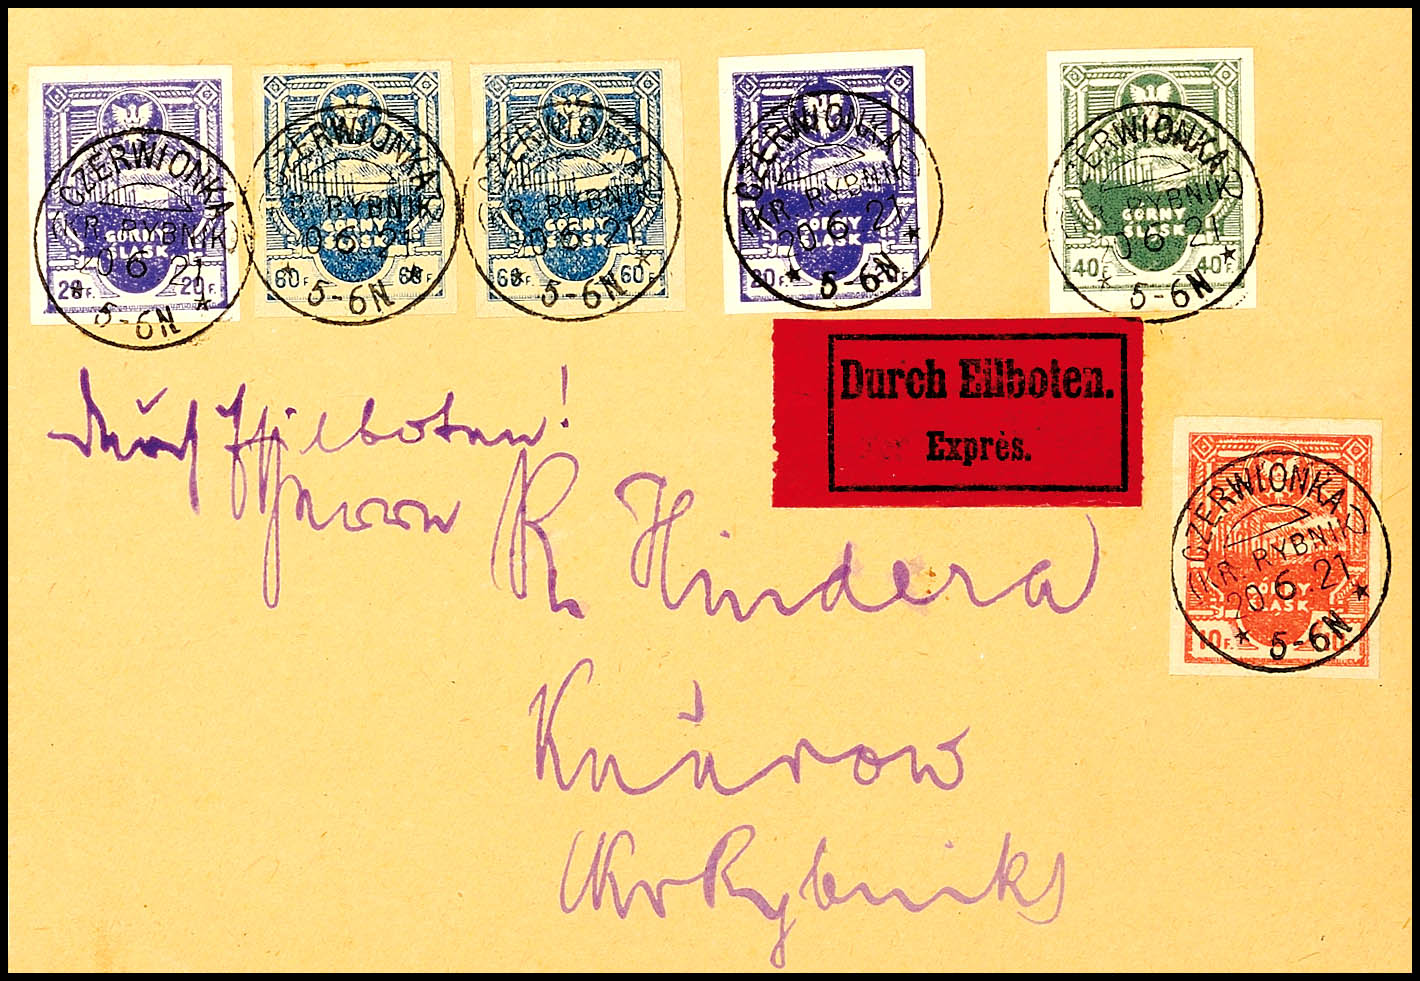 CZERWIONKA
(KR. RYBNIK)
20.6.21
5-6N
GÓRNY
ŚLĄSK
20F. 20F.
CZERWIONKA
(KR. RYBNIK)
20.6.21
5-6N
GÓRNY
ŚLĄSK
60F. 60F.
CZERWIONKA
(KR. RYBNIK)
20.6.21
5-6N
GÓRNY
ŚLĄSK
60F. 60F.
CZERWIONKA
(KR. RYBNIK)
20.6.21
5-6N
GÓRNY
ŚLĄSK
CZERWIONKA
(KR. RYBNIK)
20.6.21
5-6N
GÓRNY
ŚLĄSK
40F. 40F.
Durch Eilboten.
Exprès.
durch Eilboten!
Herrn R Hindera
Knurow
Kr Rybnik
CZERWIONKA
(KR. RYBNIK)
20.6.21
5-6N
GÓRNY
ŚLĄSK
10F.